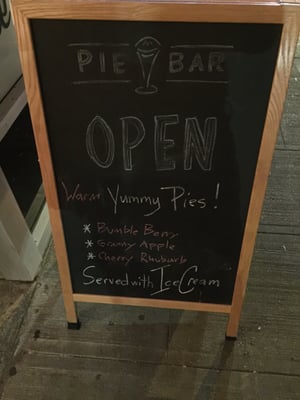 PIE BAR
OPEN
Warm Yummy Pies!
* Bumble Berry
* Granny Apple
* Cherry Rhubarb
Served with Ice Cream